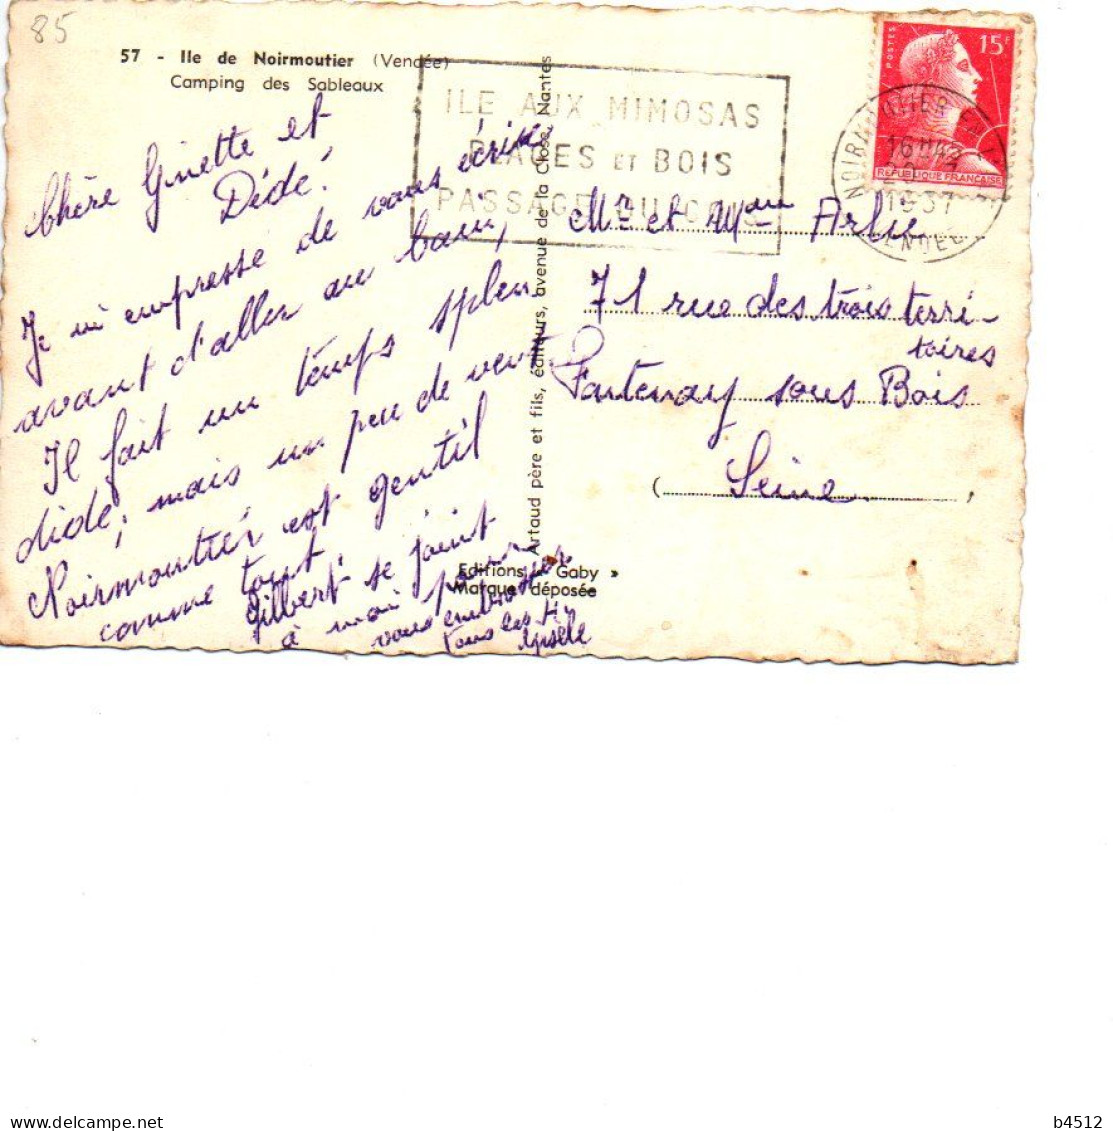 85
57 - Ile de Noirmoutier (Vendée)
Camping des Sableaux
ILE AUX MIMOSAS
PLAGES ET BOIS
PASSAGE DU GOIS
POSTES
15F
REPUBLIQUE FRANÇAISE
NOIRMOUTIER EN
16H
1957
VENDEE
Chère Ginette et
Dédé.
Je m'empresse de vous écrire
avant d'aller au bain,
Il fait un temps splen
dide, mais un peu de vent.
Noirmoutier est gentil
comme tout.
Gilbert se joint
à moi pour
vous embrasser
tous les 4
Gisèle
Artaud père et fils, éditeurs, avenue de la Close, Nantes
Editions « Gaby »
Marque déposée
Mr et Mme Arlie
71 rue des trois terri-
toires
Fontenay sous Bois
(Seine
b4512